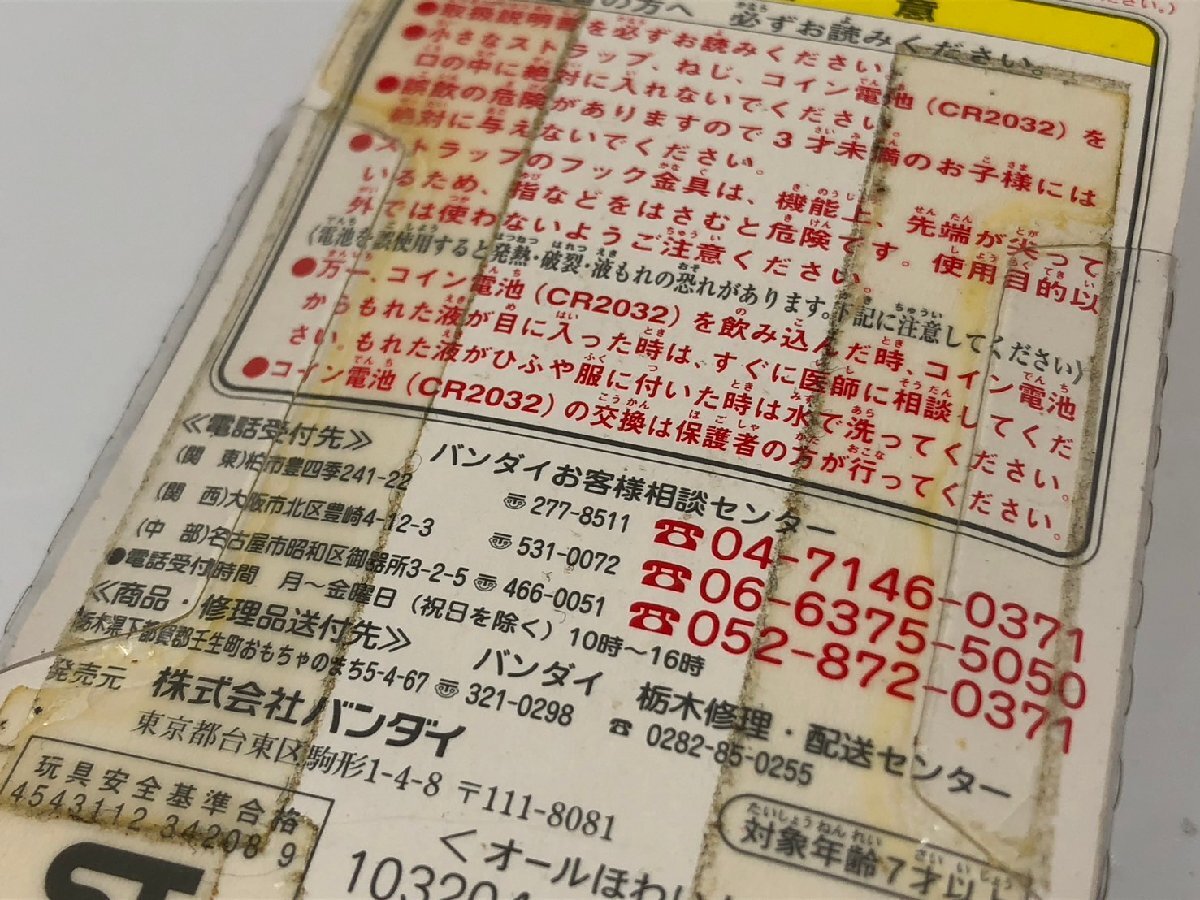 意
の方へ 必ずお読みください。
ください。)
●取扱説明書を必ずお読みください。
●小さなストラップ、ねじ、コイン電池(CR2032)を
口の中に絶対に入れないでください。
●誤飲の危険がありますので3才未満のお子様には
絶対に与えないでください。
●ストラップのフック金具は、機能上、先端が尖って
いるため、指などをはさむと危険です。使用目的以
外では使わないようご注意ください。
〈電池を誤使用すると発熱・破裂・液もれの恐れがあります。下記に注意してください〉
●万一、コイン電池(CR2032)を飲み込んだ時、コイン電池
からもれた液が目に入った時は、すぐに医師に相談してくだ
さい。もれた液がひふや服に付いた時は水で洗ってください。
●コイン電池(CR2032)の交換は保護者の方が行ってください。
≪電話受付先≫ バンダイお客様相談センター
(関 東)柏市豊四季241-22 〠277-8511 ☎04-7146-0371
(関 西)大阪市北区豊崎4-12-3 〠531-0072 ☎06-6375-5050
(中 部)名古屋市昭和区御器所3-2-5 〠466-0051 ☎052-872-0371
●電話受付時間 月～金曜日(祝日を除く)10時～16時
≪商品・修理品送付先≫ バンダイ 栃木修理・配送センター
栃木県下都賀郡壬生町おもちゃのまち5-4-67 〠321-0298 ☎0282-85-0255
発売元 株式会社バンダイ
東京都台東区駒形1-4-8 〒111-8081
玩具安全基準合格
4543112 34208 9
ST
<オールほわ
103204
対象年齢7才以上